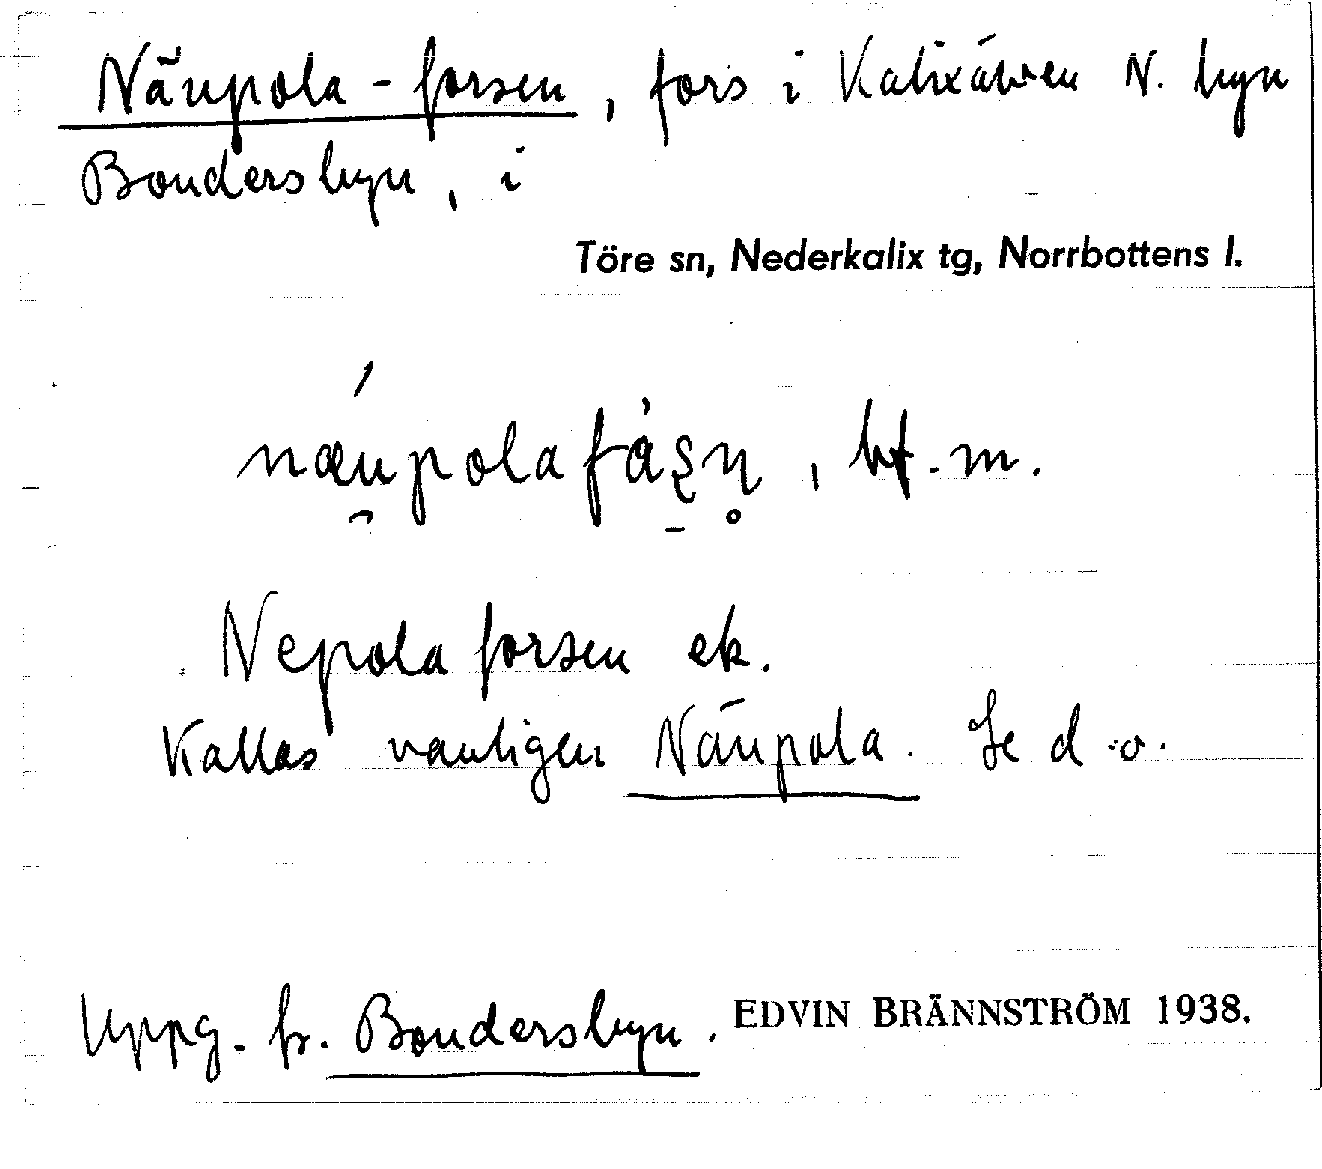 Näupola-forsen, fors i Kalixälven N. byn
Bondersbyn, i
Töre sn, Nederkalix tg, Norrbottens l.
næupolafåşņ, bf. m.
Nepolaforsen ek.
Kallas vanligen Näupola. Se d. o.
Uppg. fr. Bondersbyn. EDVIN BRÄNNSTRÖM 1938.